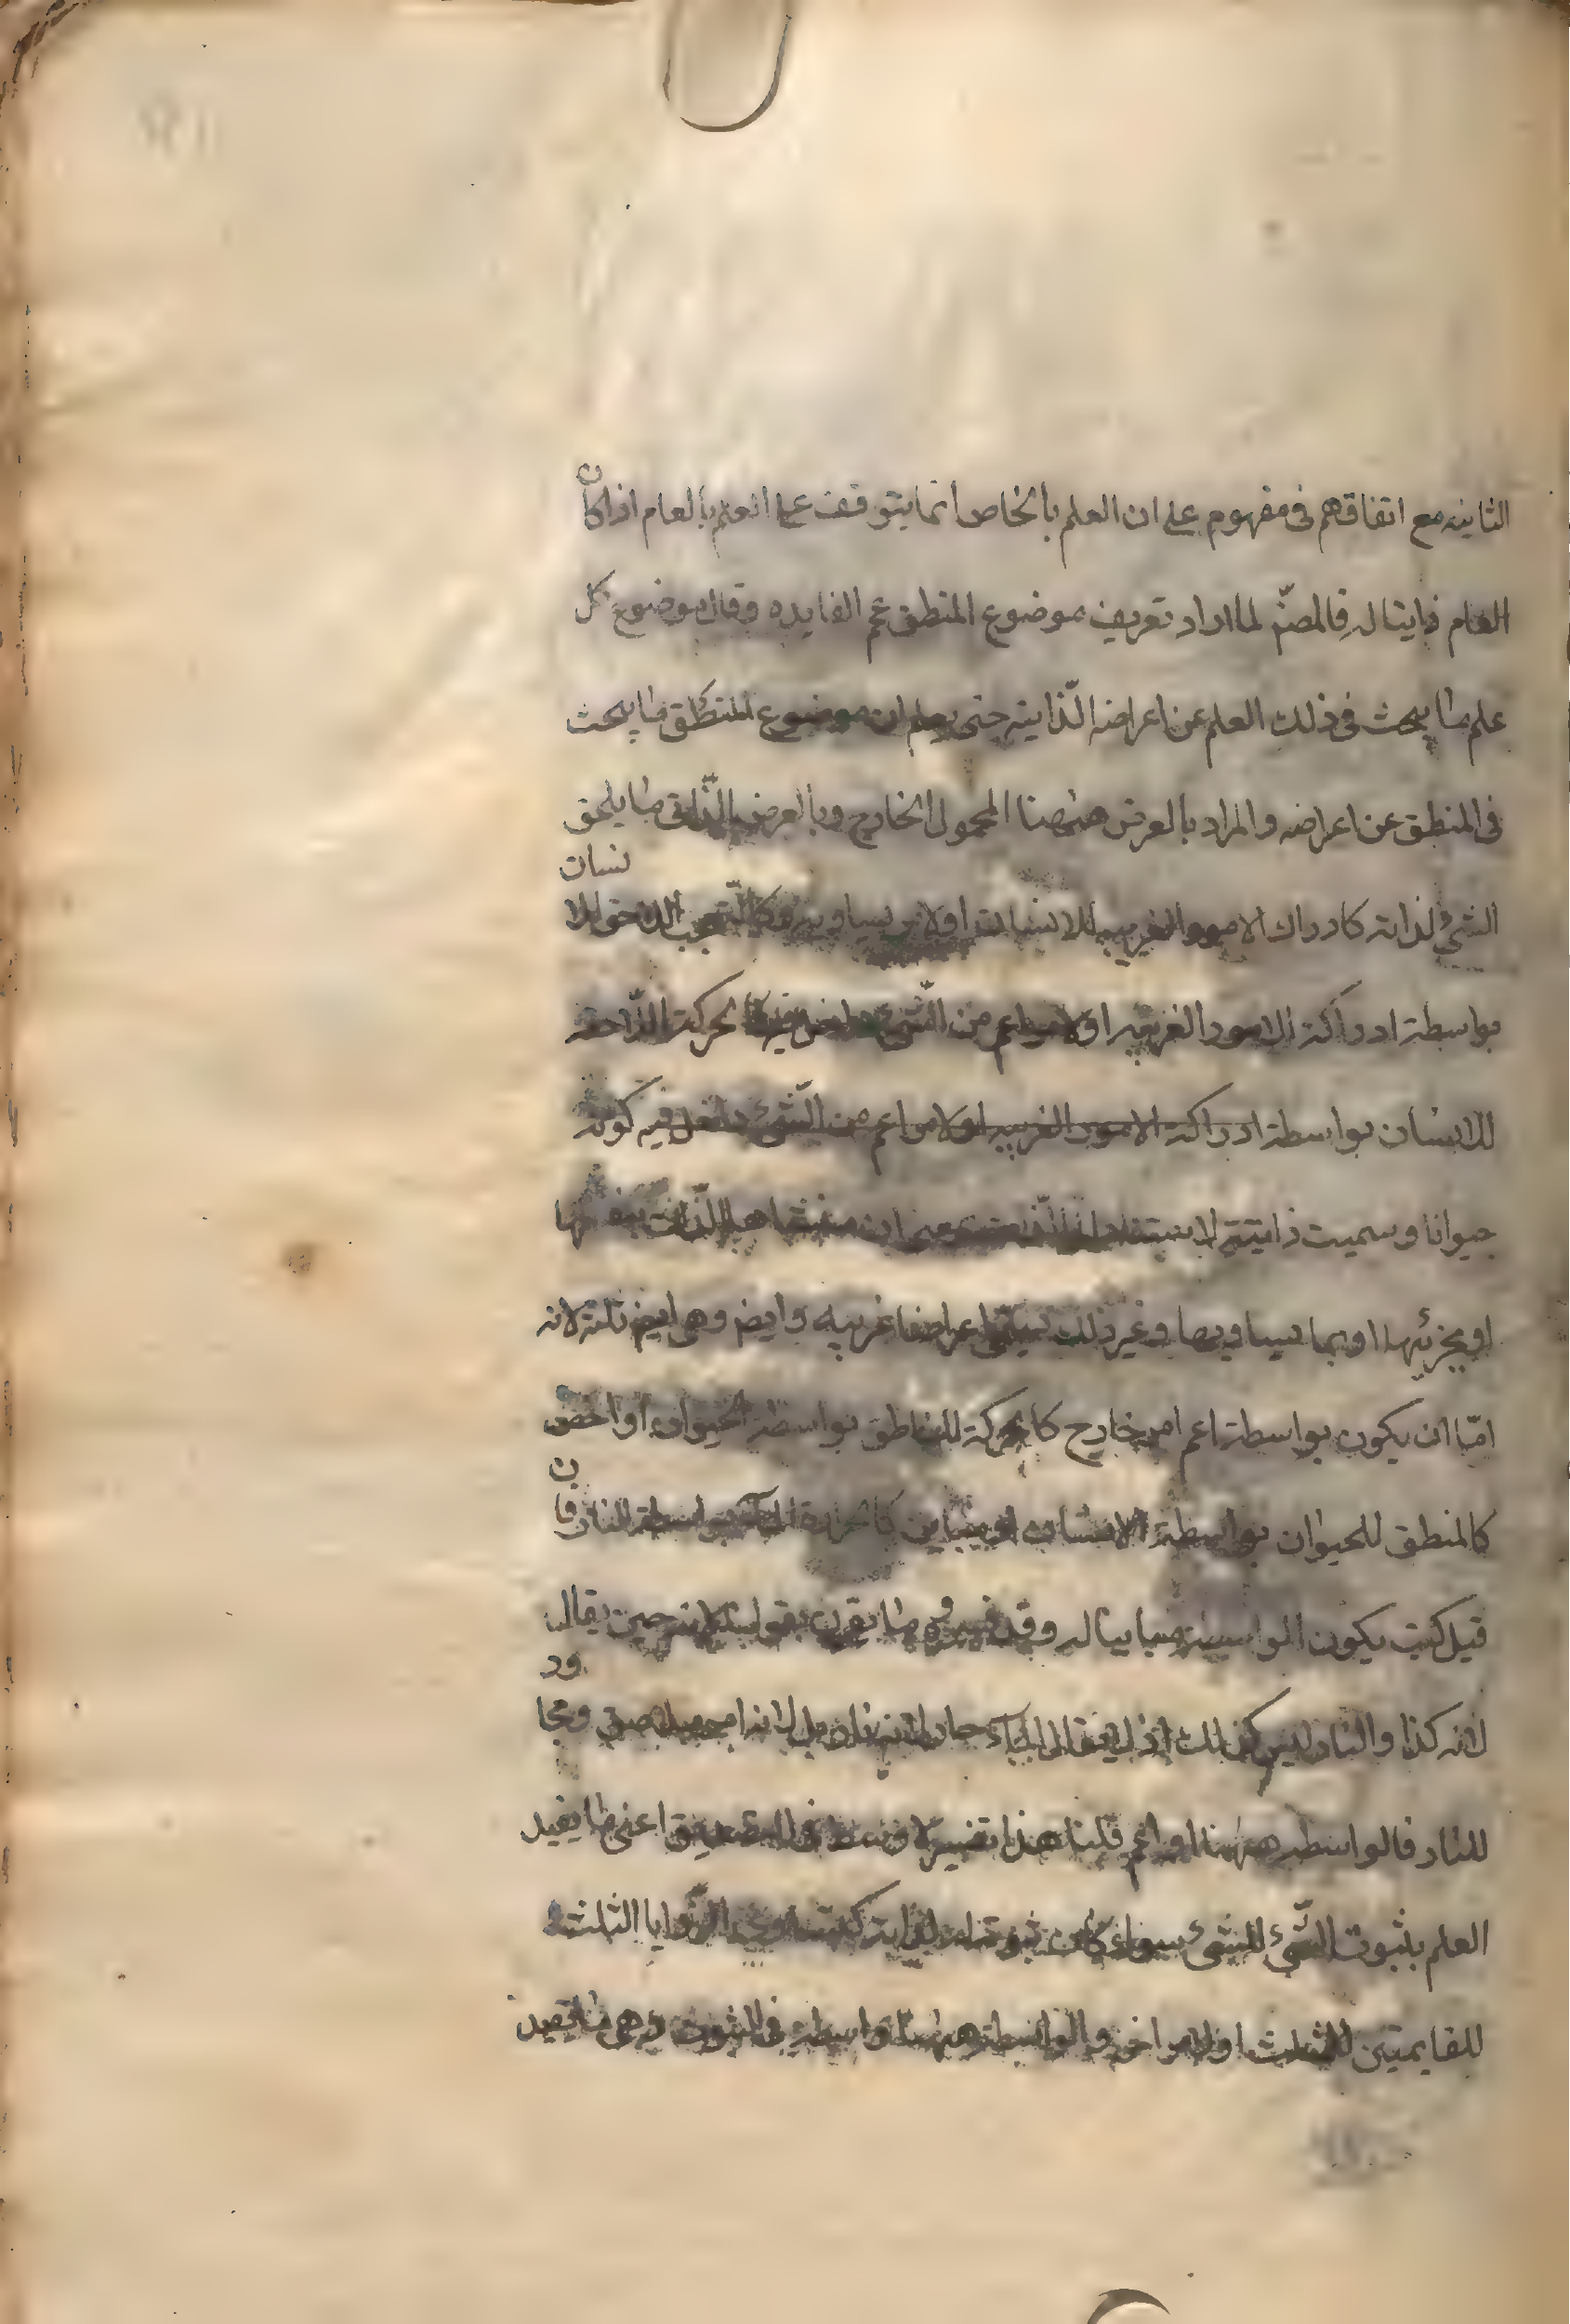 الثانيه مع اتفاقهم فى مفهوم على ان العلم بالخاص انما يتوقف على العلم بالعام اذا كان
العام ذاتيا له فالمصنّف لما اراد تعريف موضوع المنطق عمم الفايده وقال موضوع كل
علم ما يبحث فى ذلك العلم عن اعراضه الذّاتيه حتى يعلم ان موضوع المنطق ما يبحث
فى المنطق عن اعراضه والمراد بالعرض ههنا المحمول الخارج وبالعرض الذّاتى ما يلحق
الشئ لذاته كادراك الامور الغريبه للانسان او لامر يساويه كالتّعجب اللاحق للانسان
بواسطة ادراكة الامور الغريبه او لامر اعم من الشّئ داخل فيه كالحركة اللّاحقة
للانسان بواسطة ادراكة الامور الغريبه او لامر اعم من الشّئ داخل فيه كونه
حيوانا وسميت ذاتية لاستناد
او بجزئها او بما يساويها وغير ذلك يسمّى اعراضا غريبه وايض وهى ايض ثلثة لانه
امّا ان يكون بواسطة اعم امر خارج كالحركة للناطق بواسطة الحيوان او اخص
كالمنطق للحيوان بواسطة الانسان او مباين كالحرارة للماء بواسطة النار فان
قيل كيف يكون الواسطة مباينا له وقد فسروه ما يقرن بقولنا لانه حين يقال
لانه كذا والنار ليس كذلك اذ لا يقال الماء حار لانه نار بل لانه ومجاور
للنار فالواسطه ههنا قلنا هذا تفسير الواسطة فى التصديق اعنى ما يفيد
العلم بثبوت الشّئ للشئ سواء كان ثبوته له لذاته الزّوايا الثلث
للقايمتين للمثلث او لامر اخر والواسطة ههنا واسطه فى الثبوت وهى ما يفيد